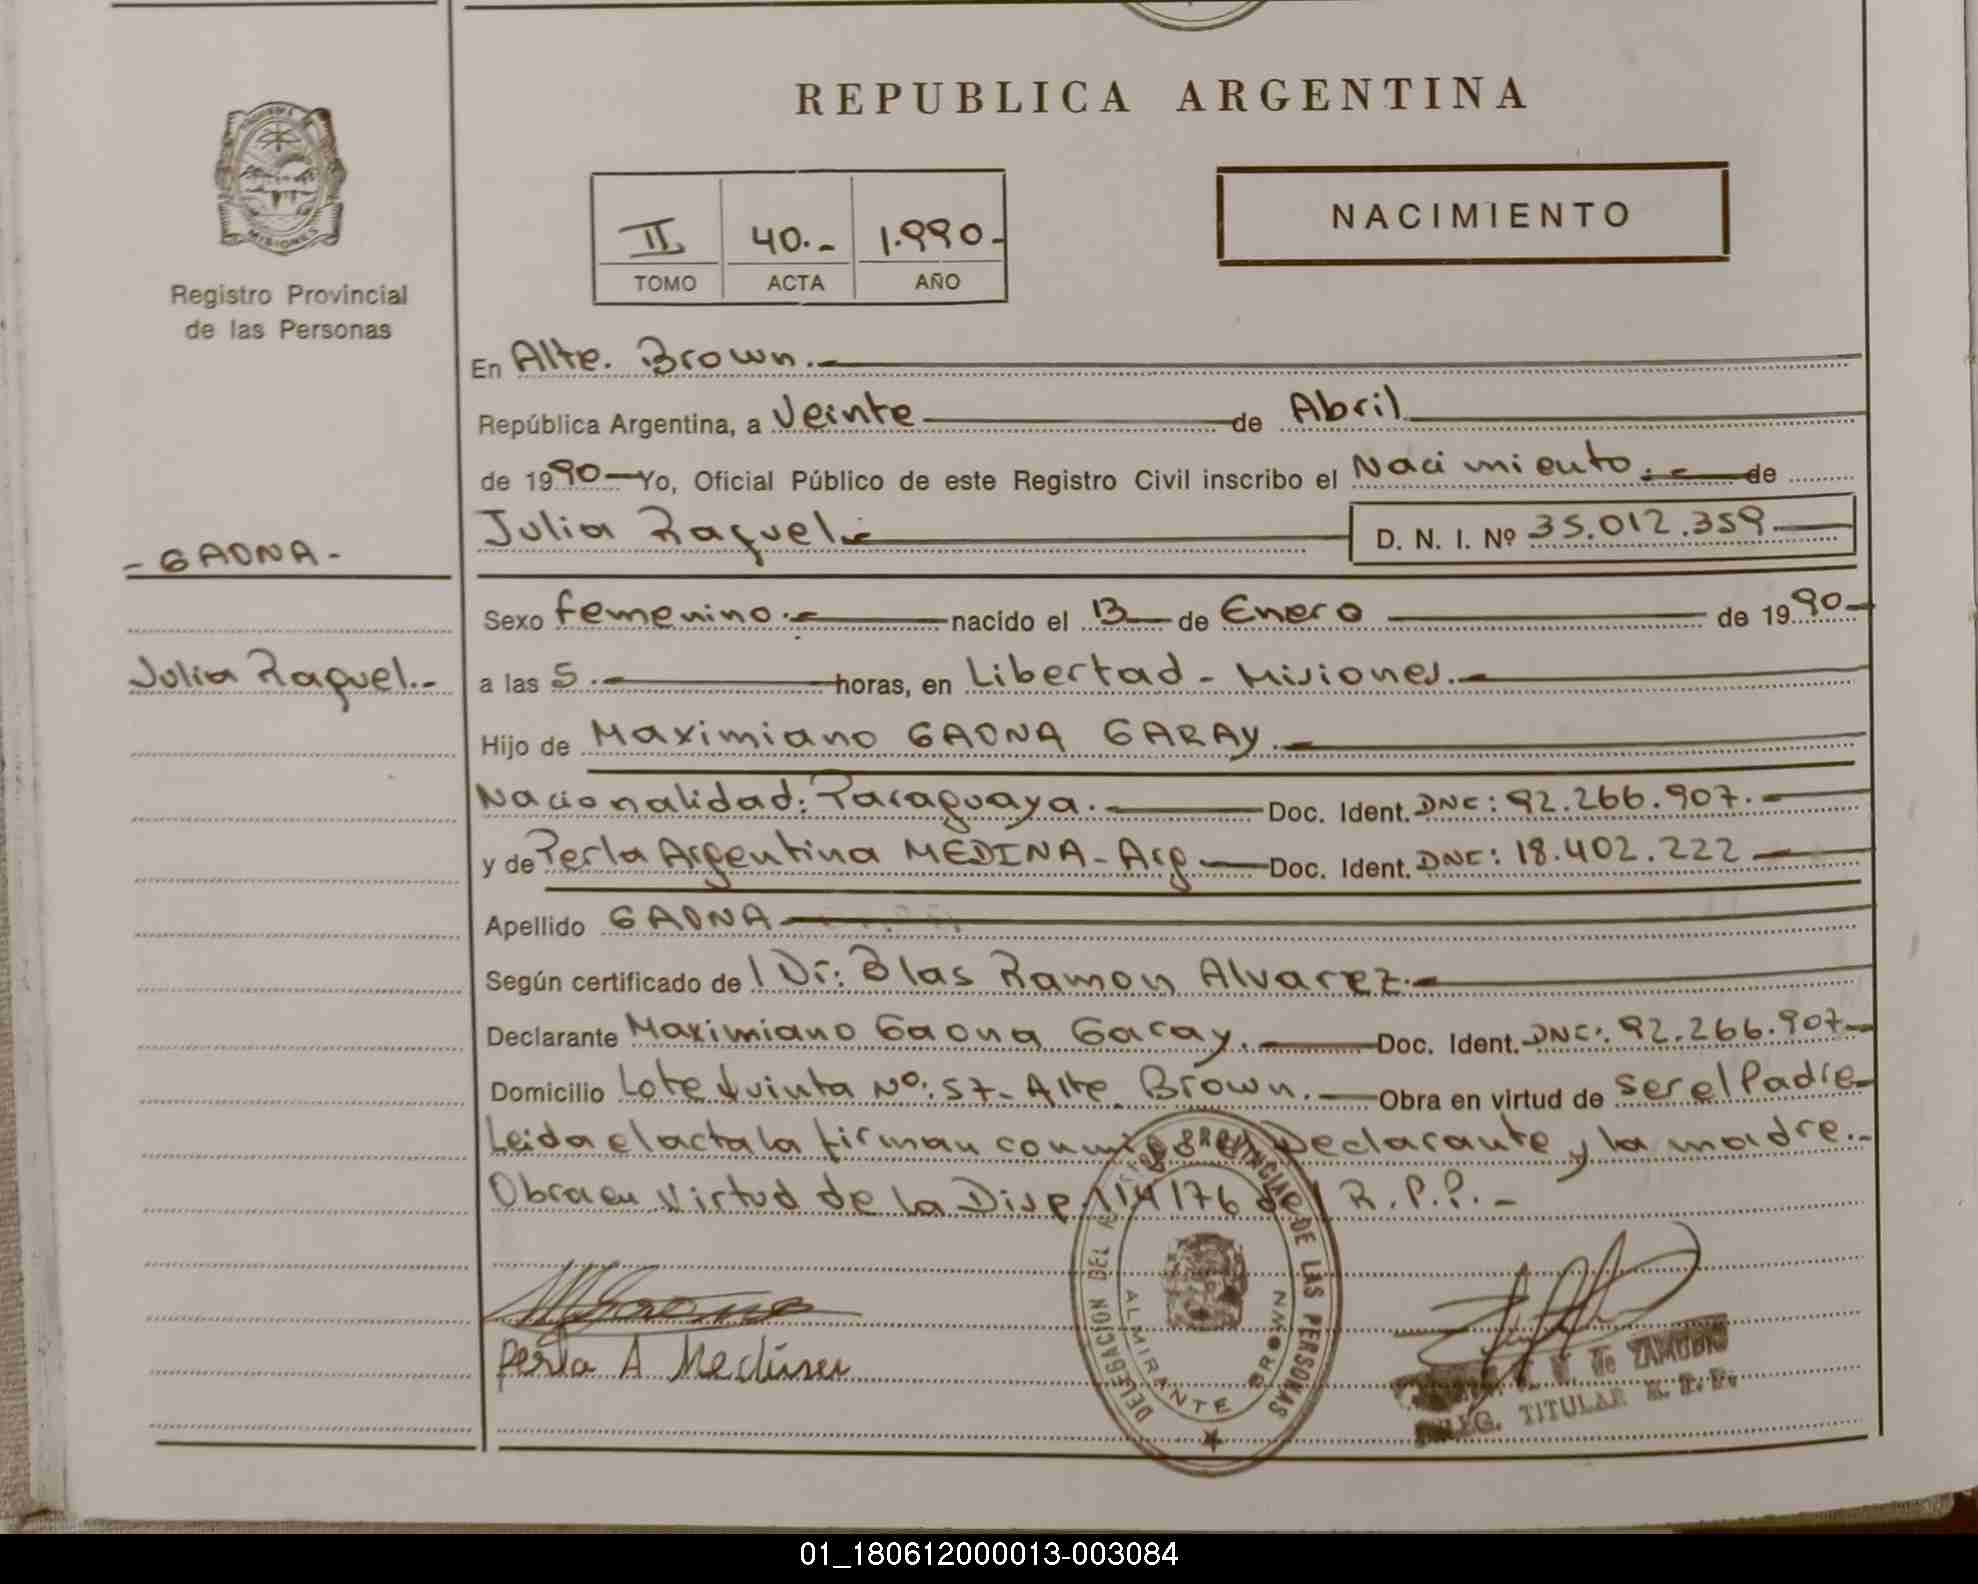 REPUBLICA ARGENTINA
MISIONES
Registro Provincial
de las Personas
II 40.- 1.990-
TOMO ACTA AÑO
NACIMIENTO
En Alte. Brown.-
República Argentina, a Veinte de Abril
de 1990 Yo, Oficial Público de este Registro Civil inscribo el Nacimiento.- de
Julia Raquel.- D. N. I. Nº 35.012.359
- GAONA -
Sexo femenino.- nacido el 13 de Enero de 1990-
Julia Raquel.-
a las 5.- horas, en Libertad - Misiones.-
Hijo de Maximiano GAONA GARAY.-
Nacionalidad: Paraguaya.- Doc. Ident. DNC: 92.266.907.-
y de Perla Argentina MEDINA - Arg Doc. Ident. DNC: 18.402.222
Apellido GAONA
Según certificado de l Dr: Blas Ramon Alvarez.-
Declarante Maximiano Gaona Garay. Doc. Ident. DNC: 92.266.907-
Domicilio Lote Quinta Nº: 57- Alte Brown.- Obra en virtud de ser el Padre-
Leida el acta la firman conmigo el Declarante y la madre.-
Obra en Virtud de la Disp 114/76 del R.P.P.-
Perla A Medina
DELEGACION DEL PROVINCIAL DE LAS PERSONAS
ALMIRANTE BROWN
de ZAMUDIO
DELEG. TITULAR R. P. P.
01_180612000013-003084